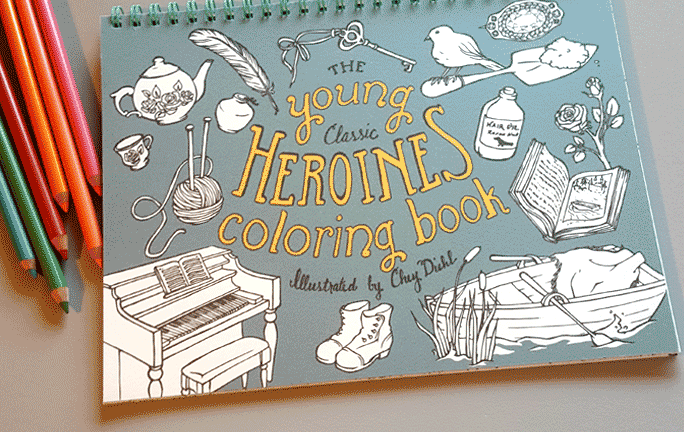 THE
young
Classic
HEROINES
coloring book
Illustrated by Chey Diehl
HAIR DYE